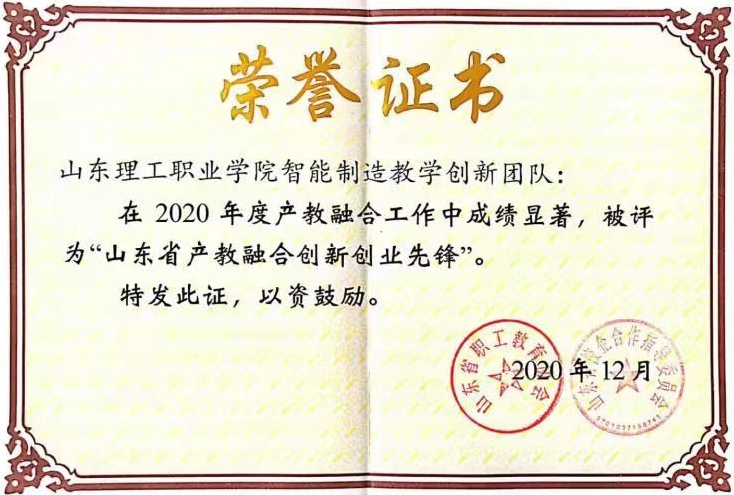 荣誉证书
山东理工职业学院智能制造教学创新团队：
在 2020 年度产教融合工作中成绩显著，被评
为“山东省产教融合创新创业先锋”。
特发此证，以资鼓励。
山东省职工教育
会
合作指导委员会
2020 年 12 月